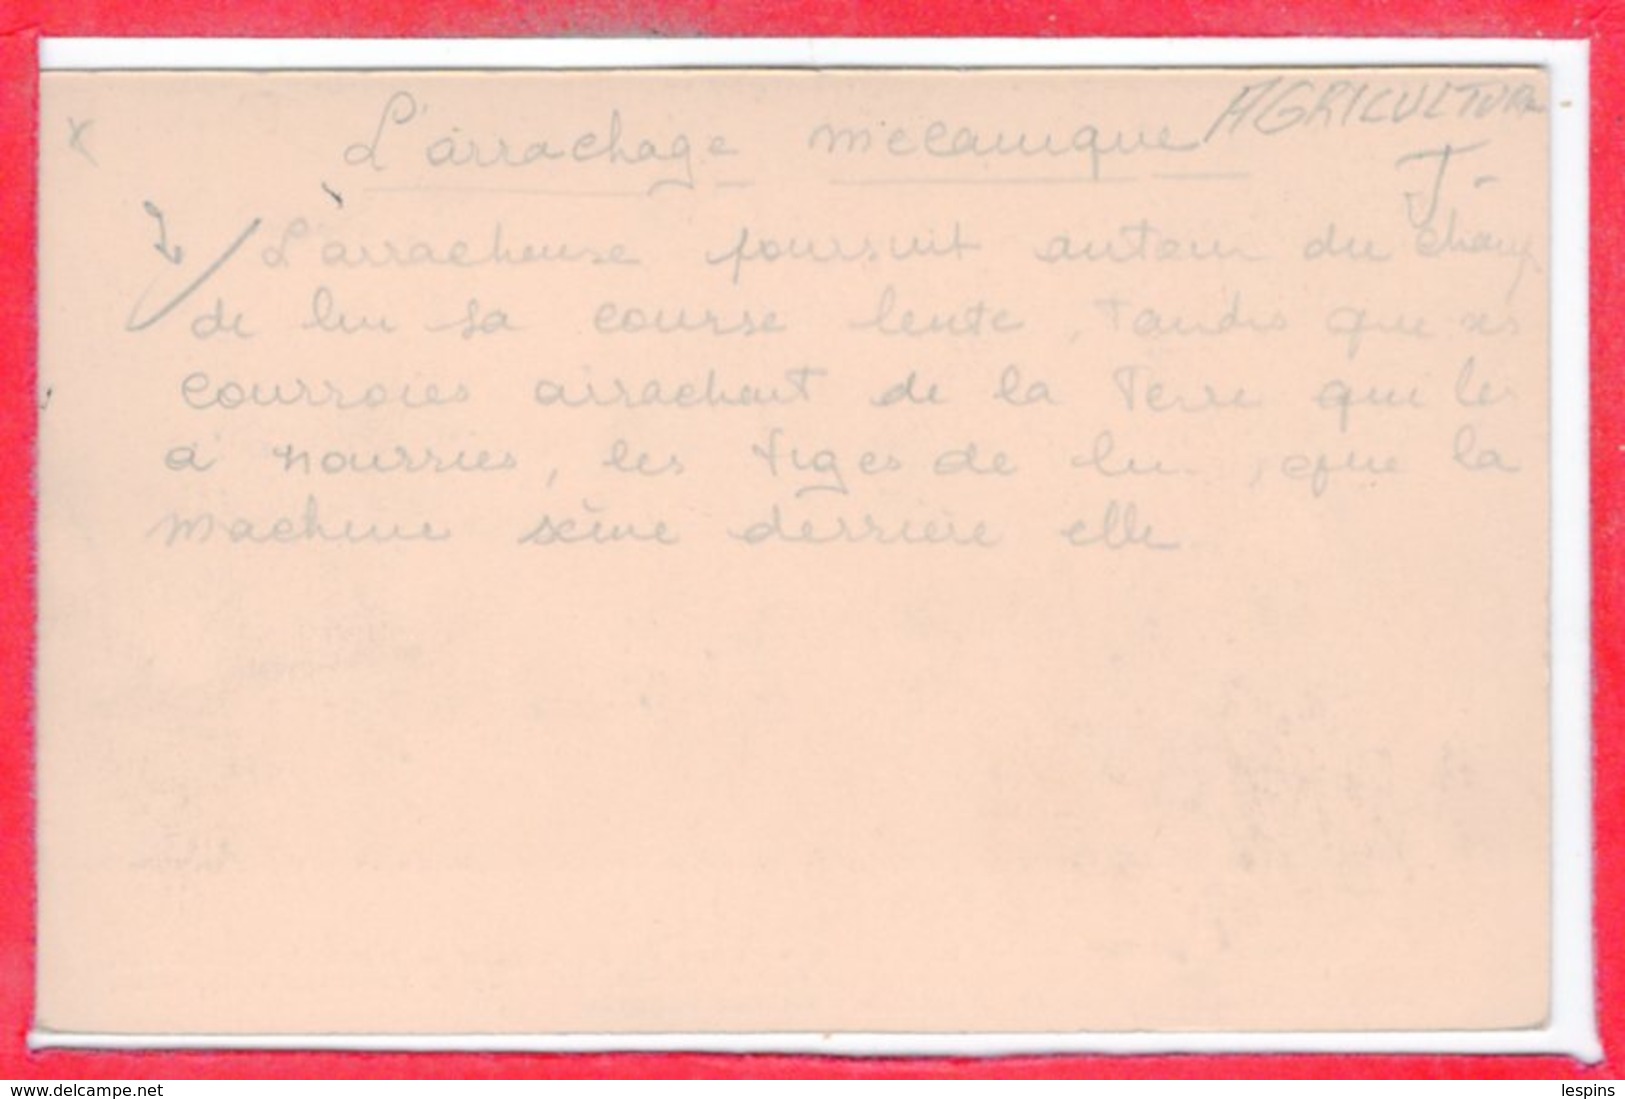 AGRICULTURE
L'arrachage mécanique
L'arracheuse poursuit autour du champ
de lin sa course lente, tandis que ses
courroies arrachent de la terre qui les
a nourries, les tiges de lin, que la
machine sème derrière elle
www.delcampe.net
lespins